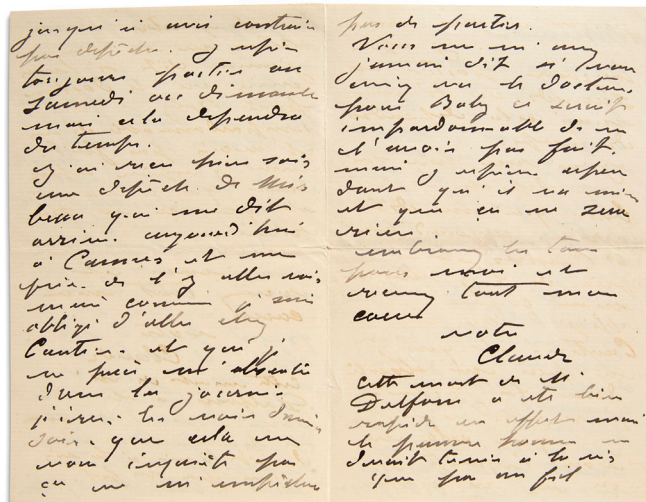 jusqu'à avis contraire
par dépêche. J'espère
toujours partir ou
Samedi ou dimanche
mais cela dépendra
du temps.
J'ai reçu hier soir
une dépêche de Mis
qui me dit
arriver aujourd'hui
à Cannes et me
prie de l'y aller voir
mais comme je suis
obligé d'aller chez
Cantin et que je
ne puis m'absenter
dans la journée
j'irai les voir dans
soir. que cela ne
vous inquiète pas
ça ne m'empêchera
pas de partir.
Vous ne m'avez
jamais dit si vous
avez vu le docteur
pour Baby ce serait
impardonnable de ne
l'avoir pas fait.
mais j'espère cepen
dant qu'il va mieux
et que ça ne sera
rien
embrassez les tous
pour moi et
recevez tout mon
coeur
votre
Claude
cette mort de M.
a été bien
rapide en effet mais
le pauvre homme ne
devait tenir à la vie
que par un fil